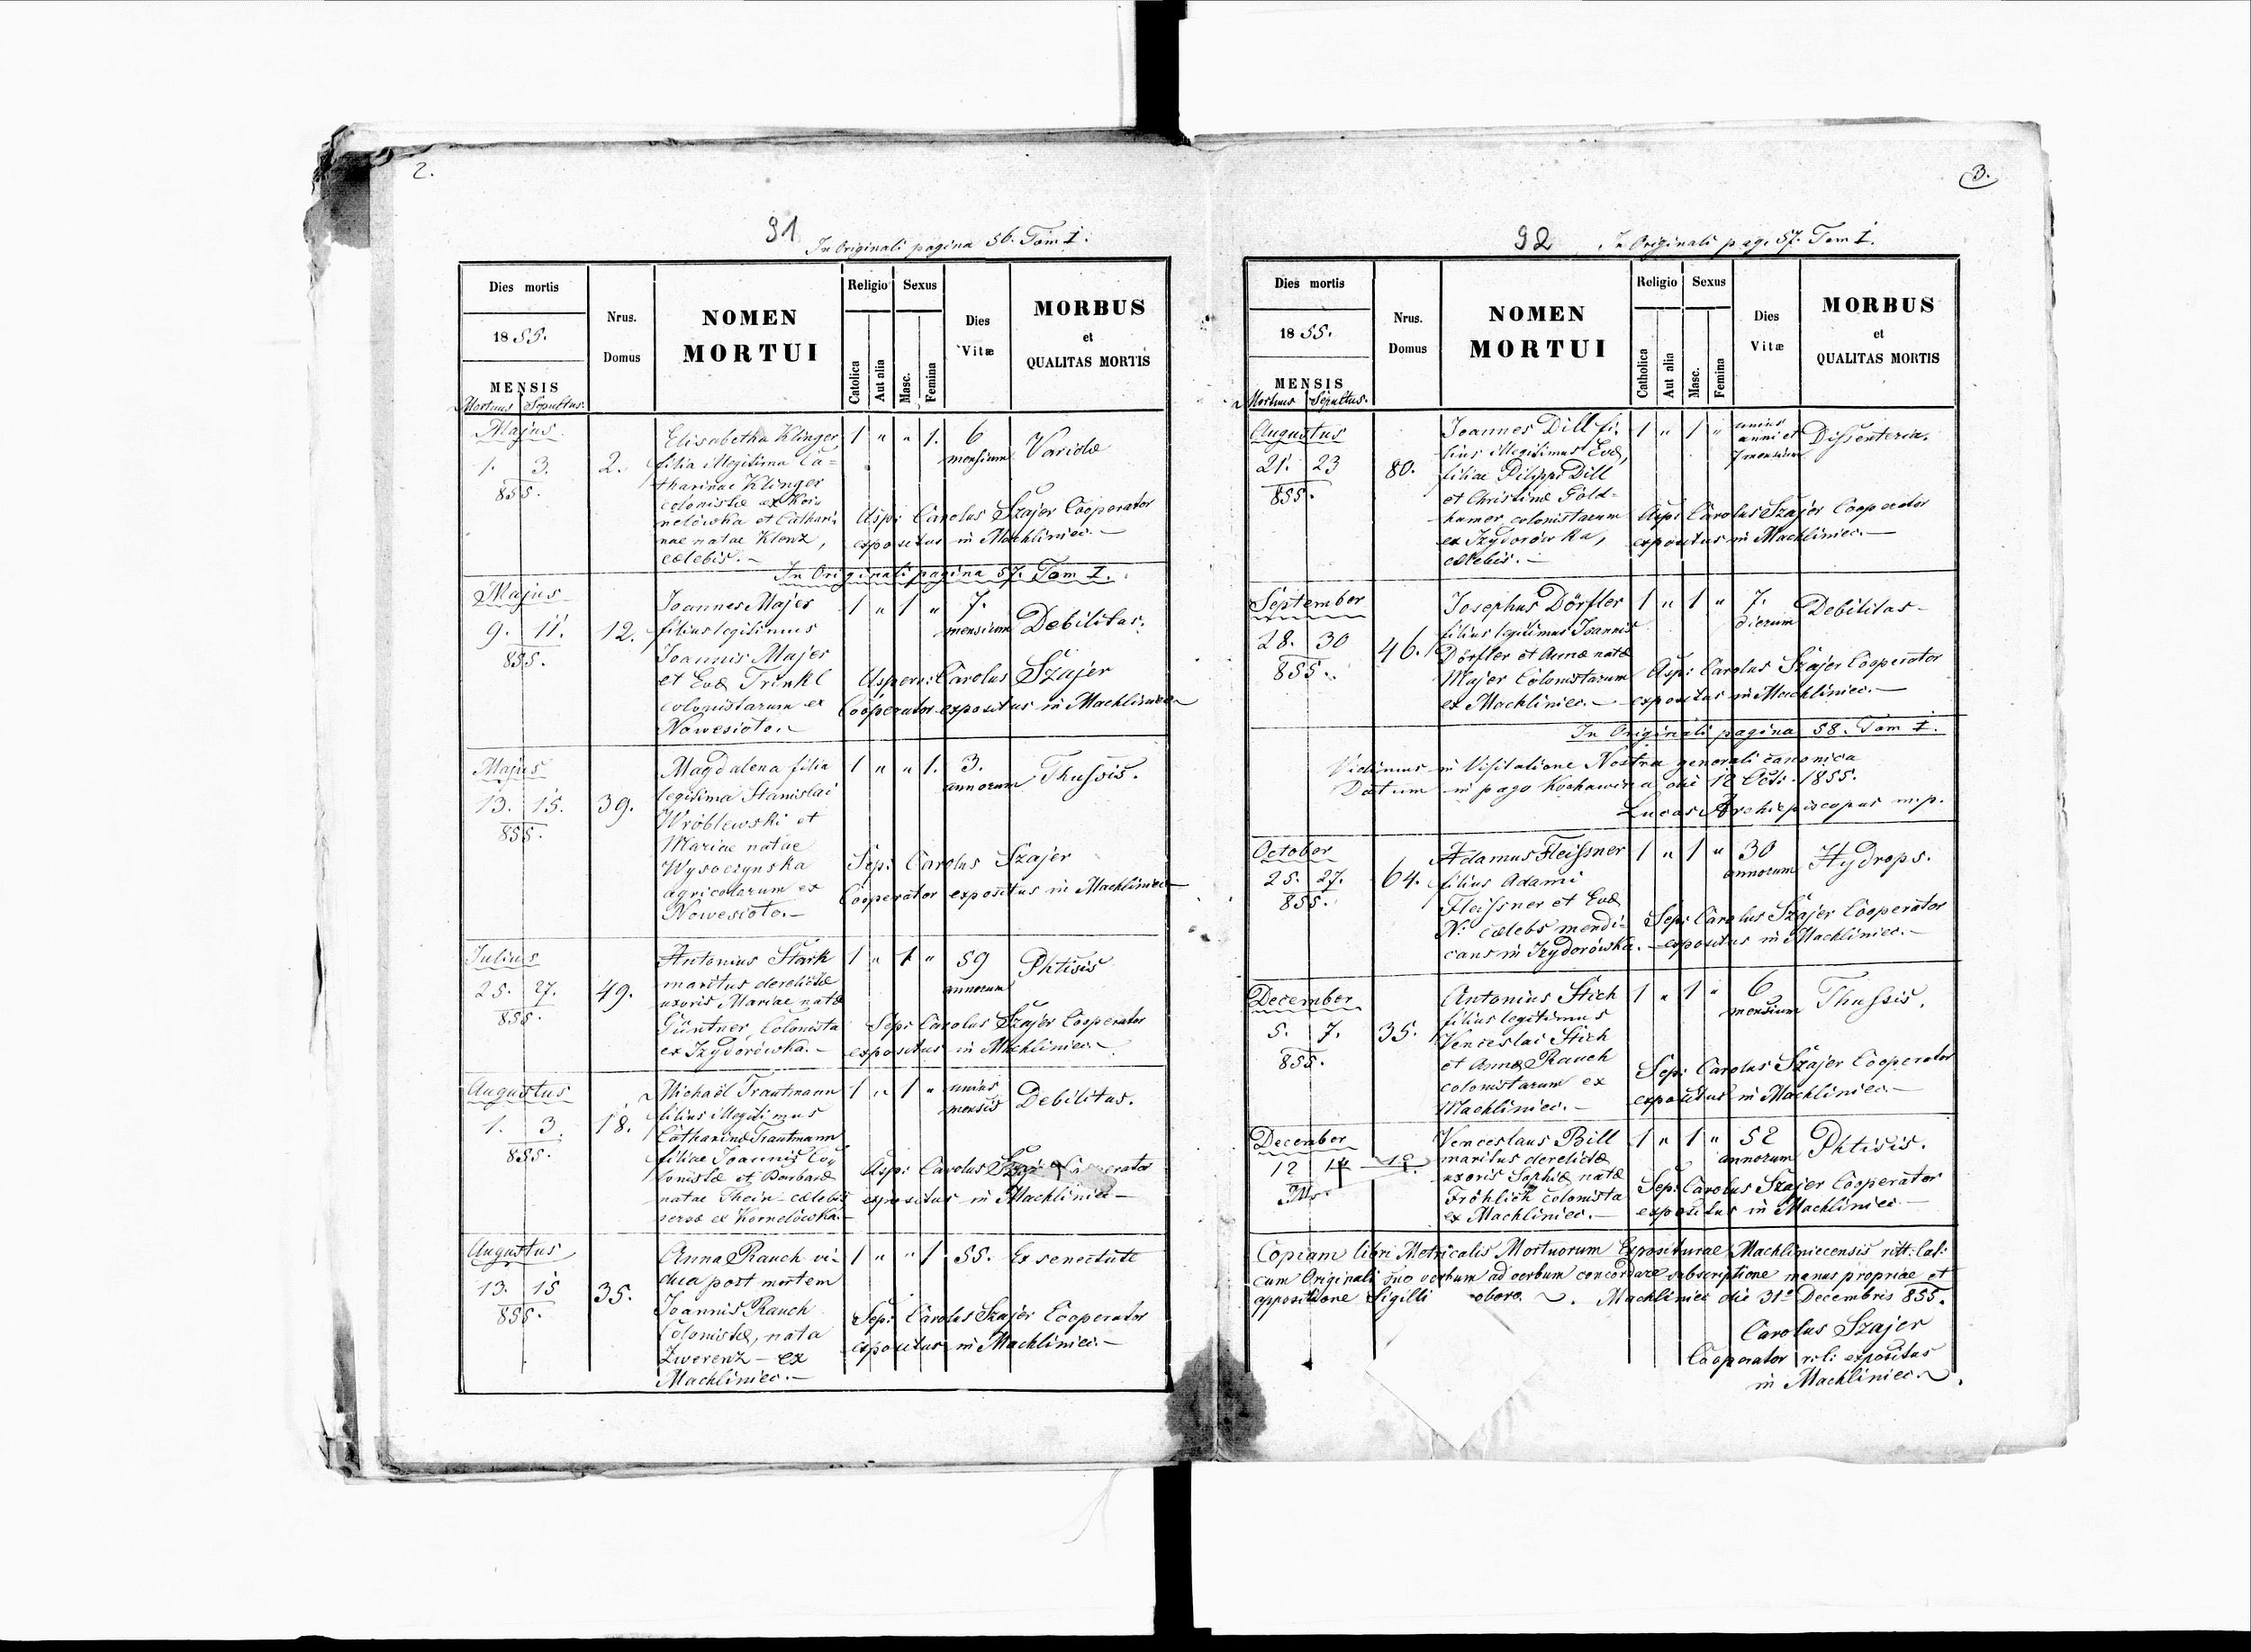 2.
91
In Originali pagina 56. Tom I.
Dies mortis
1855.
MENSIS
Mortuus Sepultus.
Nrus.
Domus
NOMEN
MORTUI
Religio
Catolica
Aut alia
Sexus
Masc.
Femina
Dies
Vitæ
MORBUS
et
QUALITAS MORTIS
Majus
1. 3.
855.
2.
Elisabetha Klinger
filia illegitima Ca=
tharinae Klinger
colonistæ ex Kor=
nelówka et Cathari=
nae natae Klenz,
cœlebis.-
1 " " 1.
6
mensium
Variolæ
Asp: Carolus Szajer Cooperator
expositus in Machliniec.-
In Originali pagina 57. Tom I.
Majus
9. 11.
855.
12.
Joannes Majer
filius legitimus
Joannis Majer
et Evæ Trinkl
colonistarum ex
Nowesioło.
1 " 1 "
7.
mensium
Debilitas.
Aspers: Carolus Szajer
Cooperator expositus in Machliniec
Majus
13. 15.
855.
39.
Magdalena filia
legitima Stanislai
Wróblewski et
Mariae natae
Wysoczynska
agricolarum ex
Nowesioło.-
1 " " 1.
3.
annorum
Thussis.
Sep: Carolus Szajer
Cooperator expositus in Machliniec
Julius
25. 27.
855.
49.
Antonius Stark
maritus derelictæ
uxoris Mariae natæ
Güntner, Colonista
ex Izydorówka.-
1 " 1 "
59
annorum
Phtisis
Sep: Carolus Szajer Cooperator
expositus in Machliniec.
Augustus
1. 3.
855.
18.
Michaël Trautmann
filius illegitimus
Catharinæ Trautmann
filiae Joannis Co=
lonistæ et Barbaræ
natae Thein cælebis
servæ ex Kornelówka.-
1 " 1 "
unius
mensis
Debilitas.
Asp: Carolus Szajer Cooperator
expositus in Machliniec-
Augustus
13. 15
855.
35.
Anna Rauch vi=
dua post mortem
Joannis Rauch
Colonistæ, nata
Zwerenz - ex
Machliniec.-
1 " " 1
55.
Ex senectute
Sep: Carolus Szajer Cooperator
expositus in Machliniec.-
3.
92
In Originali pag. 57. Tom I.
Dies mortis
1855.
MENSIS
Mortuus Sepultus.
Nrus.
Domus
NOMEN
MORTUI
Religio
Catholica
Aut alia
Sexus
Masc.
Femina
Dies
Vitæ
MORBUS
et
QUALITAS MORTIS
Augustus
21. 23
855.
80.
Joannes Dill fi=
lius illegitimus Evæ,
filiae Pilippi Dill
et Christinæ Gold=
hamer colonistarum
ex Izydorówka,
cœlebis.-
1 " 1 "
unius
anni et
7 mensium
Dissenteria.
Asp: Carolus Szajer Cooperator
expositus in Machliniec.-
September
28. 30
855.
46.
Josephus Dörfler
filius legitimus Joannis
Dörfler et Annæ natæ
Majer Colonistarum
ex Machliniec.-
1 " 1 "
7.
dierum
Debilitas-
Asp: Carolus Szajer Cooperator
expositus in Machliniec.-
In Originali pagina 58. Tom I.
Vidimus in Visitatione Nostra generali canonica
Datum in pago Kochawina die 12 Octb. 1855.
Lucas Archiepiscopus m.p.
October
25. 27.
855.
64.
Adamus Fleissner
filius Adami
Fleissner et Evæ
N. cælebs mendi=
cans in Izydorówka.-
1 " 1 "
30
annorum
Hydrops.
Sep: Carolus Szajer Cooperator
expositus in Machliniec.-
December
5. 7.
855.
35.
Antonius Stich
filius legitimus
Venceslai Stich
et Annæ Rauch
colonistarum ex
Machliniec.-
1 " 1 "
6
mensium
Thussis.
Sep: Carolus Szajer Cooperator
expositus in Machliniec.-
December
12 14 12.
Venceslaus Bill
maritus derelictæ
uxoris Sophiæ natæ
Fröhlich colonista
ex Machliniec.-
1 " 1 "
52
annorum
Phtisis.
Sep: Carolus Szajer Cooperator
expositus in Machliniec-
Copiam libri Metricalis Mortuorum Expositurae Machliniecensis ritt: lat:
cum Originali suo verbum ad verbum concordare subscriptione manus propriae et
appositione Sigilli oboro. Machliniec die 31a Decembris 855.
Carolus Szajer
Cooperator r: l: expositus
in Machliniec.